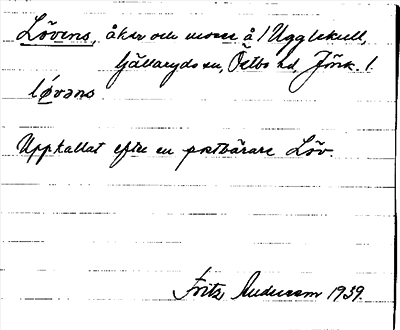 Lövens, åker och mosse å 1 Ugglekull,
Gällaryds sn, Östbo hd, Jönk. l
lǿvəns
Uppkallat efter en postbärare Löv.
Fritz Andersson 1939.